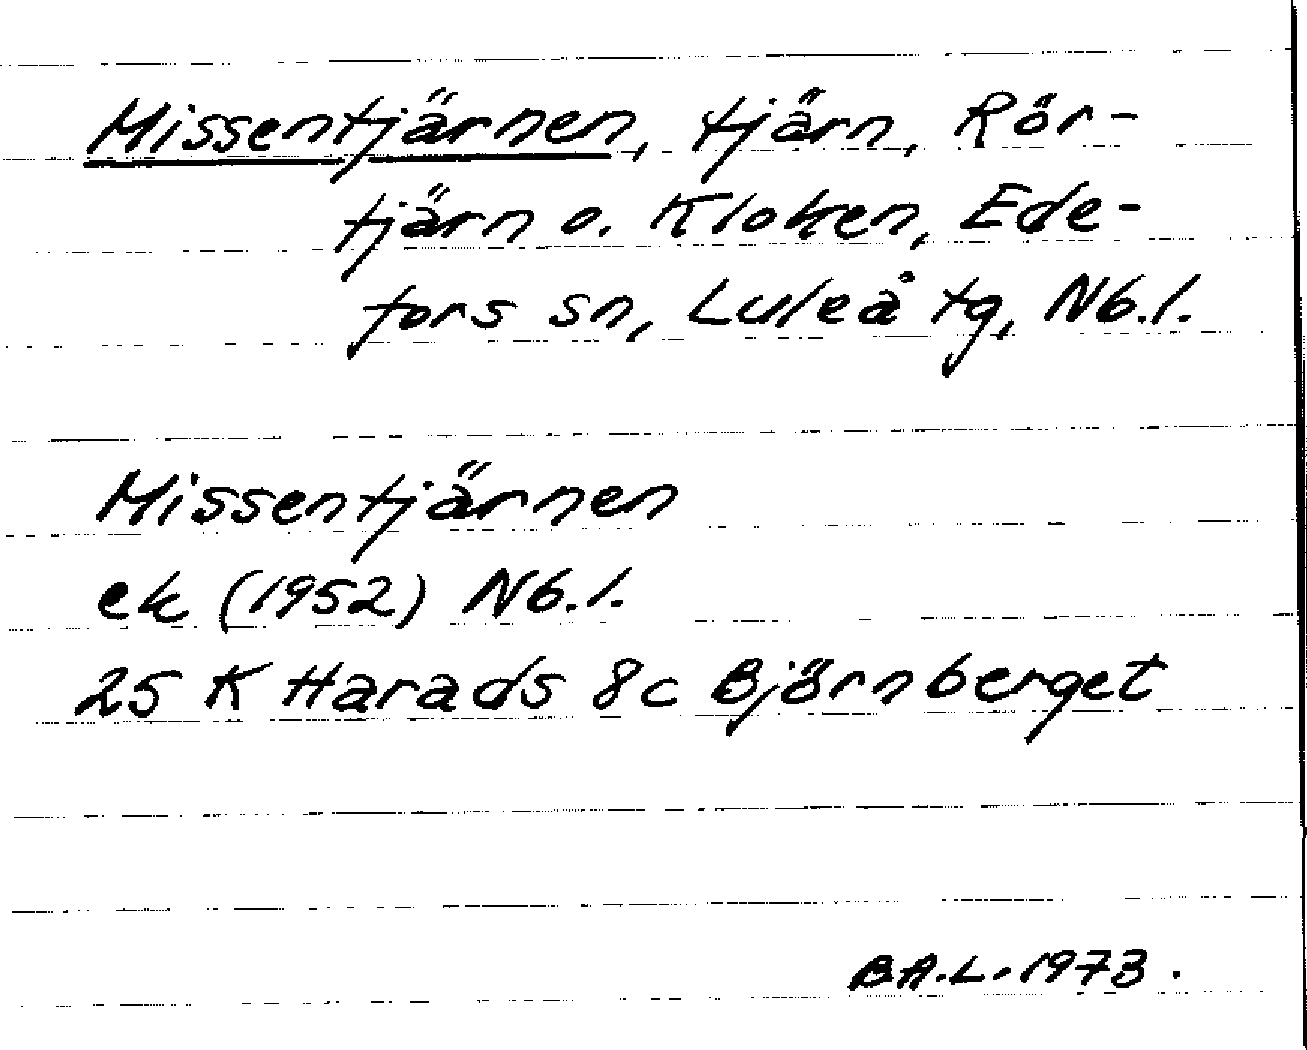 Missentjärnen, tjärn, Rör-
tjärn o. Kloken, Ede-
fors sn, Luleå tg, Nb.l.
Missentjärnen
ek (1952) Nb.l.
25 K Harads 8c Björnberget
BA.L. 1973.